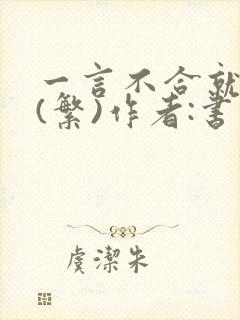 一言不合就
(繁)作者:書
虞潔朱